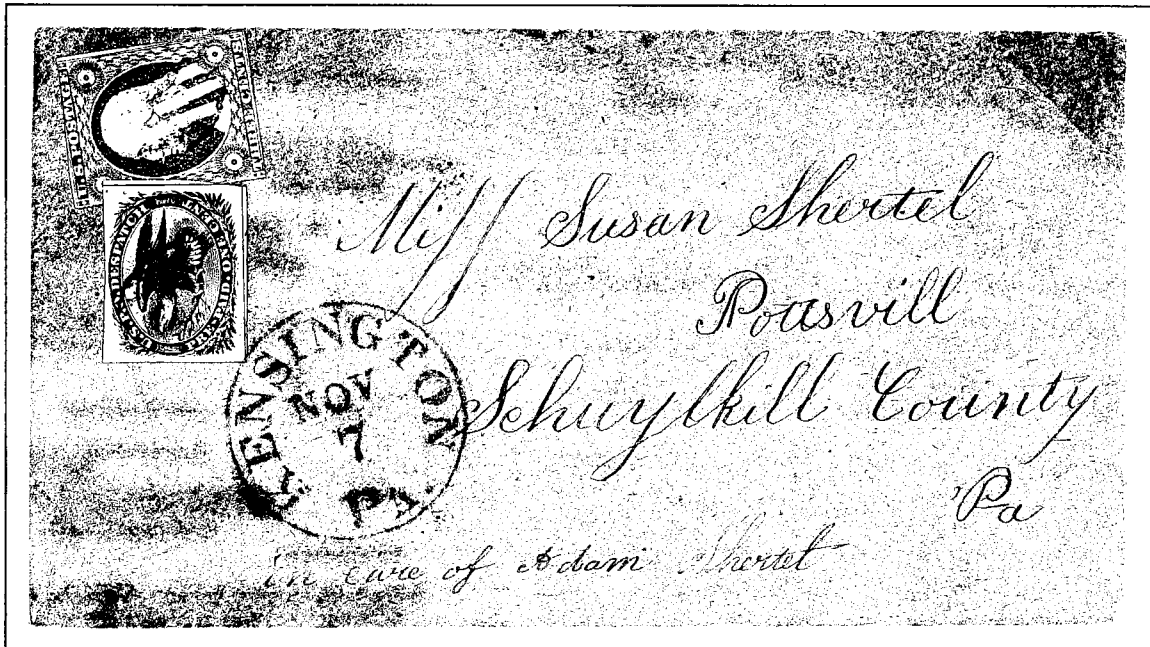 U.S. POSTAGE
Miss Susan Shertel
Pottsvill
Schuylkill County
Pa
KENSINGTON
NOV
7
PA.
in care of Adam Shertel